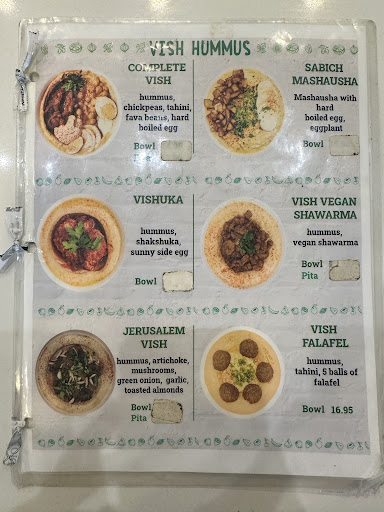 VISH HUMMUS
COMPLETE
VISH
hummus,
chickpeas, tahini,
fava beans, hard
boiled egg
Bowl
Pita
SABICH
MASHAUSHA
Mashausha with
hard
boiled egg,
eggplant
Bowl
VISHUKA
hummus,
shakshuka,
sunny side egg
Bowl
VISH VEGAN
SHAWARMA
hummus,
vegan shawarma
Bowl
Pita
JERUSALEM
VISH
hummus, artichoke,
mushrooms,
green onion, garlic,
toasted almonds
Bowl
Pita
VISH
FALAFEL
hummus,
tahini, 5 balls of
falafel
Bowl 16.95